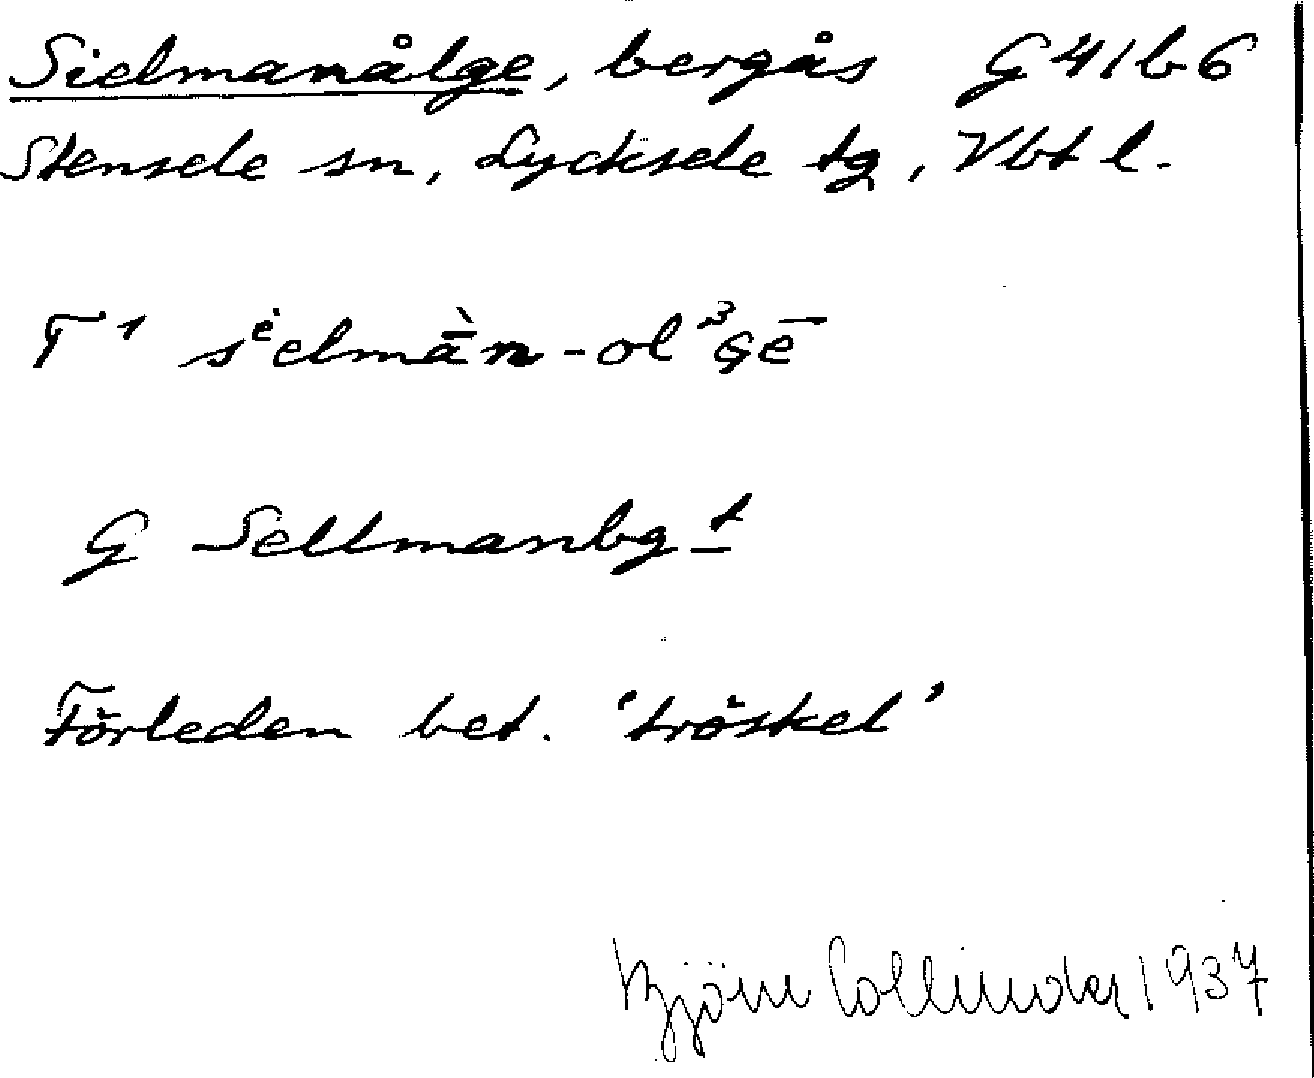 Sielmanålge, bergås G 41 b 6
Stensele sn, Lycksele tg, Vbt l.
T¹ sᵉ̇elmā̀n-ol³Gē
G Sellmanbg t
Förleden bet. 'tröskel'
Björn Collinder 1937